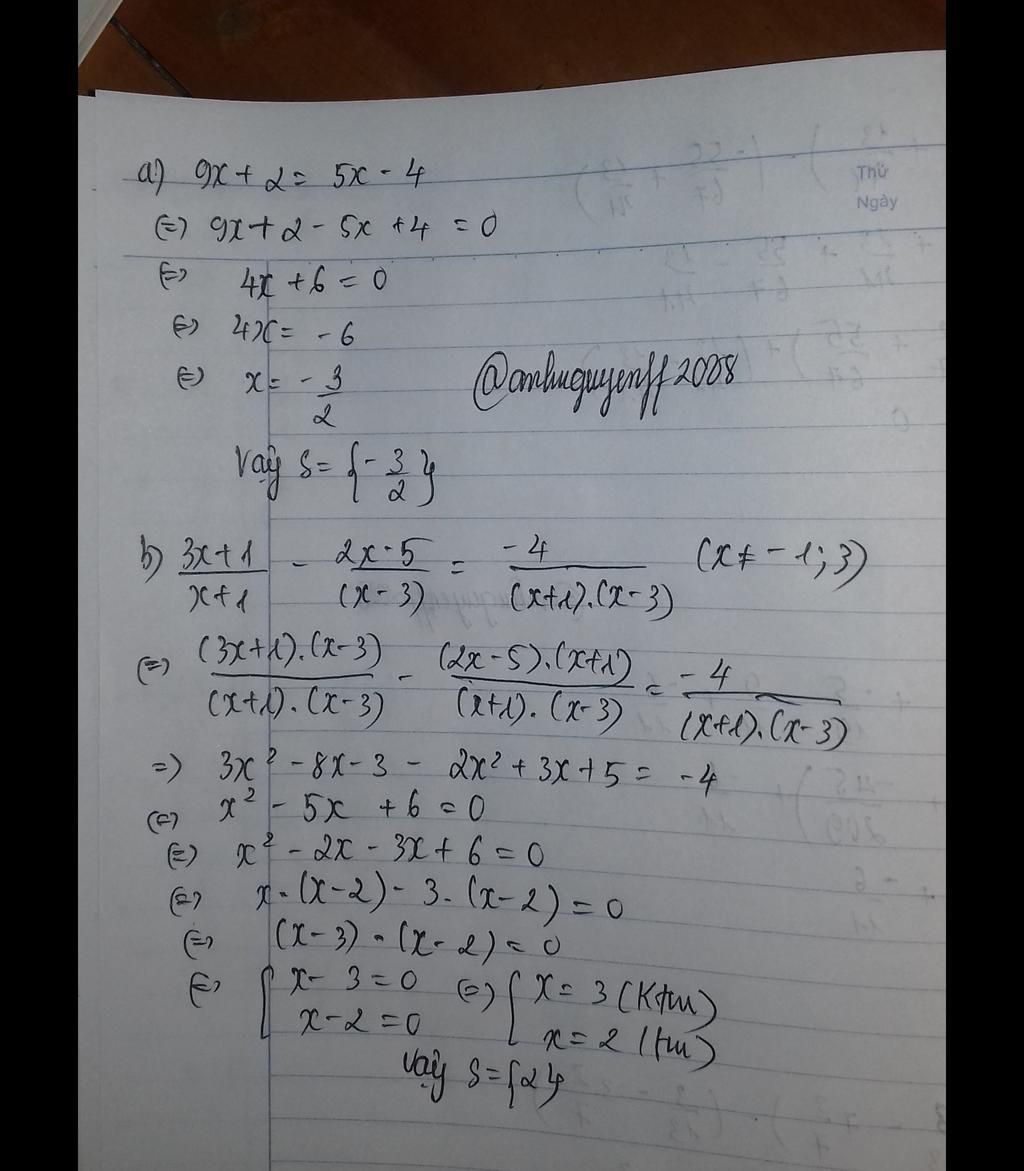 Thứ
Ngày
a) 9x + 2 = 5x - 4
(=) 9x + 2 - 5x + 4 = 0
(=) 4x + 6 = 0
(=) 4x = - 6
(=) x = - 3/2
@anhnguyenff2008
Vậy S = {- 3/2}
b) (3x+1)/(x+1) - (2x-5)/(x-3) = -4/((x+1).(x-3)) (x ≠ -1; 3)
(=) ((3x+1).(x-3))/((x+1).(x-3)) - ((2x-5).(x+1))/((x+1).(x-3)) = -4/((x+1).(x-3))
=) 3x² - 8x - 3 - 2x² + 3x + 5 = -4
(=) x² - 5x + 6 = 0
(=) x² - 2x - 3x + 6 = 0
(=) x . (x-2) - 3 . (x-2) = 0
(=) (x-3) . (x-2) = 0
(=) [ x - 3 = 0 (=) [ x = 3 (Ktm)
x - 2 = 0 x = 2 (tm)
Vậy S = {2}